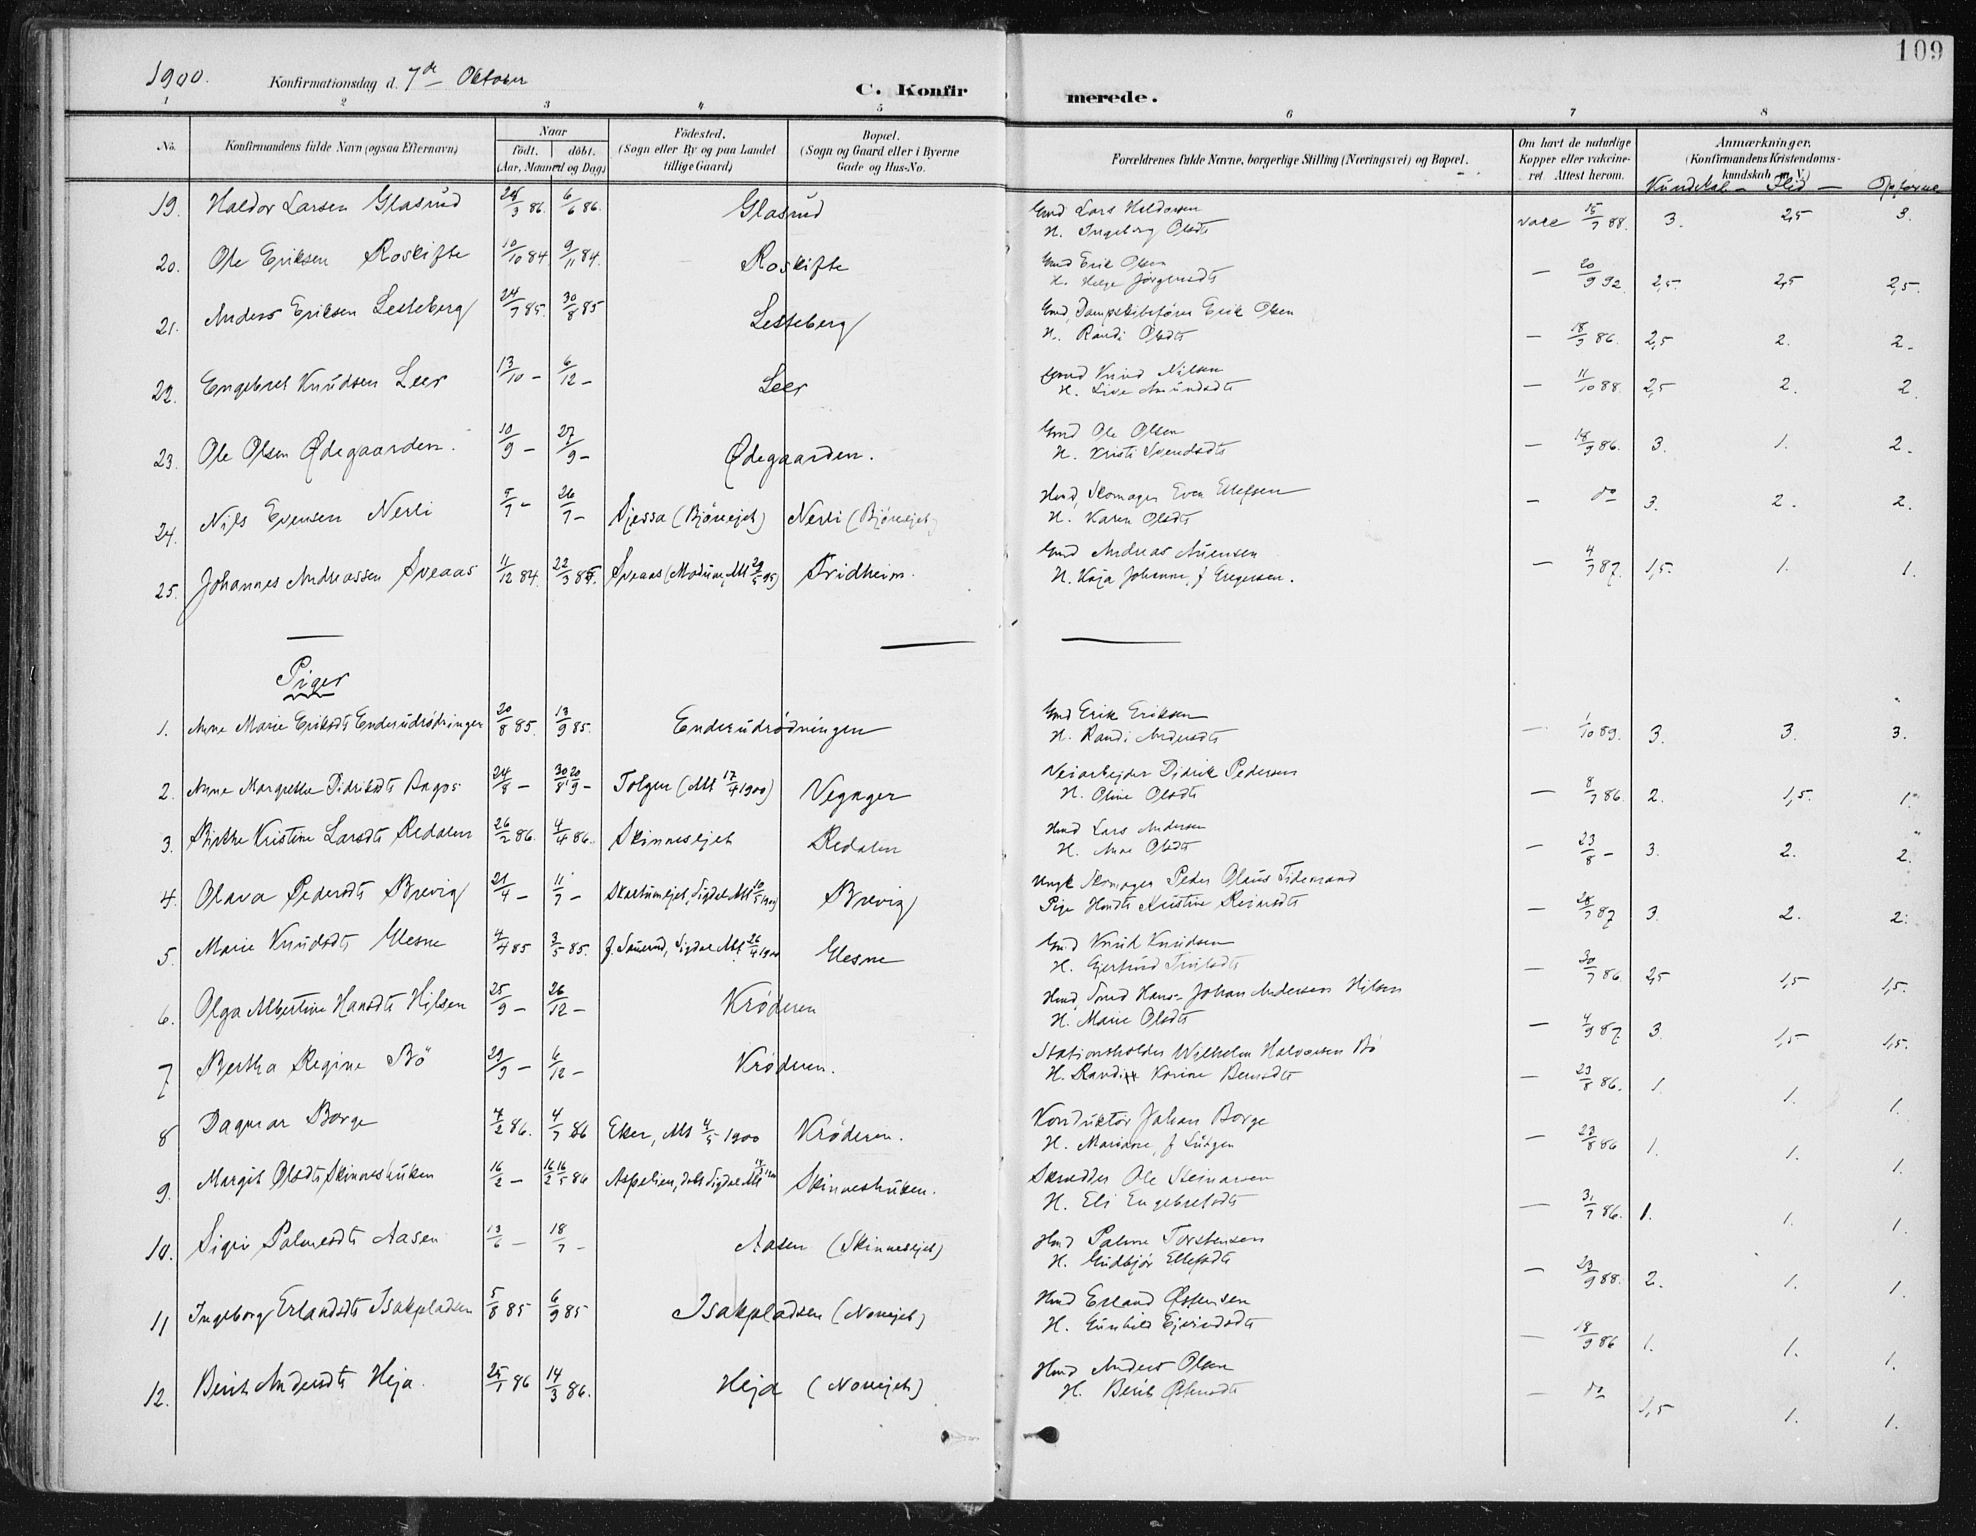 109
1900. Konfirmationsdag d. 7de Oktober
C. Konfirmerede.
1 2 3 4 5 6 7 8
No. Konfirmandens fulde Navn (ogsaa Efternavn) Naar födt. döbt. (Aar, Maaned og Dag) Födested. (Sogn eller By og paa Landet tillige Gaard) Bopæl. (Sogn og Gaard eller i Byerne Gade og Hus-No. Forældrenes fulde Navne, borgerlige Stilling (Næringsvei) og Bopæl. Om havt de naturlige Kopper eller vakcineret. Attest herom. Anmærkninger. (Konfirmandens Kristendomskundskab m. V.)
Kundskab – Flid – Opførsel
19. Haldor Larsen Glasrud 24/3 86. 6/6 86. Glasrud Gmd Lars Haldorsen vacc 15/7 88. 3. 2,5 3.
H. Ingeborg Olsdt
20. Ole Eriksen Roskifte 10/10 84 9/11 84. Roskifte Gmd Erik Olsen — 20/9 92. 2,5. 2,5 2,5.
H. Helge Jørgensdt
21. Anders Eriksen Lesteberg 24/7 85. 30/8 85 Lesteberg Gmd, Dampskibsfører Erik Olsen — 18/9 86. 2,5 2. 2.
H. Randi Olsdt
22. Engebret Knudsen Leer 13/10 – 6/12 – Leer Gmd Knud Nilsen — 11/10 88. 2,5 2. 2
H. Live Amundsdt
23. Ole Olsen Ødegaarden. 10/9 – 27/9 – Ødegaarden. Gmd Ole Olsen — 18/9 86. 3. 1. 2.
H. Kristi Svendsdt
24. Nils Evensen Nerli 5/7 – 26/7 – (Bjøreejet) Nerli (Bjøreejet) Hmd, Skomager Even Ellefsen — do 3. 2. 2.
H. Karen Olsdt
25. Johannes Andreassen Sveaas 11/12 84. 22/3 85. Sveaas (Modum, Att 29/5 95) Fridheim. Gmd Andreas — 4/7 87. 1,5. 1. 1.
H. Kaja Johanne, f Gregersen.
Piger
1. Anne Marie Eriksdt Enderudrødningen 20/8 85. 13/9 85. Enderudrødningen Gmd Erik Eriksen — 1/10 89. 3. 3. 3.
H. Randi Andersdt
2. Anne Margrethe Didriksdt Aagos 24/8 – 30/8 20/9 – Tolgen (Att 17/4 1900) Veganger Veiarbejder Didrik Pedersen — 8/7 86. 2. 1,5. 1.
H. Oline Olsdt
3. Birthe Kristine Larsdt Redalen 26/2 86. 4/4 86. Skinnesejet Redalen Hmd Lars Andersen — 23/8 – 3. 2. 2.
H. Anne Olsdt
4. Olava Pedersdt Brevig 21/4 – 11/7 – Skartumejet, Sigdal Att 10/5 1900 Brevig Ungk Skomager Peder Olaus Tidemand — 28/7 87 3. 2. 2.
Pige Kristine
5. Marie Knudsdt Glesne 4/4 85 3/5 85. f. Sigdal Att 26/4 1900 Glesne Gmd Knud Knudsen — 30/7 86 2,5 1,5 1,5.
H. Gjertrud
6. Olga Albertine Hansdt Hilsen 25/9 – 26/12 – Krøderen Hmd, Hans Johan Andersen Hilsen — 4/9 87. 3 1,5 1,5.
H. Marie Olsdt
7 Bertha Regine Bö 29/9 – 6/12 – Krøderen. Stationsholder Wilhelm Halvorsen Bö — 23/8 86. 1. 1. 1.
H. Randi Karine Berntsdt
8 Dagmar Borge 4/2 86. 4/7 86 Eker, Att 4/5 1900 Krøderen. Konduktør Johan Borge — 23/8 86 1. 1. 1.
H. Mariane, f Lütgen
9. Margit Olsdt Skinneshuken 16/2 – 16/2 16/5 86 Aspelien, døbt Sigdal Att Skinneshuken. Skrædder Ole Steinarsen — 31/7 86. 1. 1. 1.
H. Eli Engebretsdt
10. Sigri Palmesdt Aasen 13/6 – 18/7 – Aasen (Skinnesejet) Hmd Palme Torstensen — 23/9 88. 2. 1. 1.
H. Gudbjør Ellefsdt
11 Ingeborg Erlandsdt Isakpladsen 5/8 85 6/9 85 Isakpladsen (Noreejet) Hmd Erland Østensen — 18/9 86 1. 1. 1.
H. Gunhild Ejvindsdt
12. Berit Andersdt Heja. 25/1 86 14/3 86. Heja (Noreejet) Hmd Anders Olsen — do 1,5 1. 1.
H. Berit Østensdt